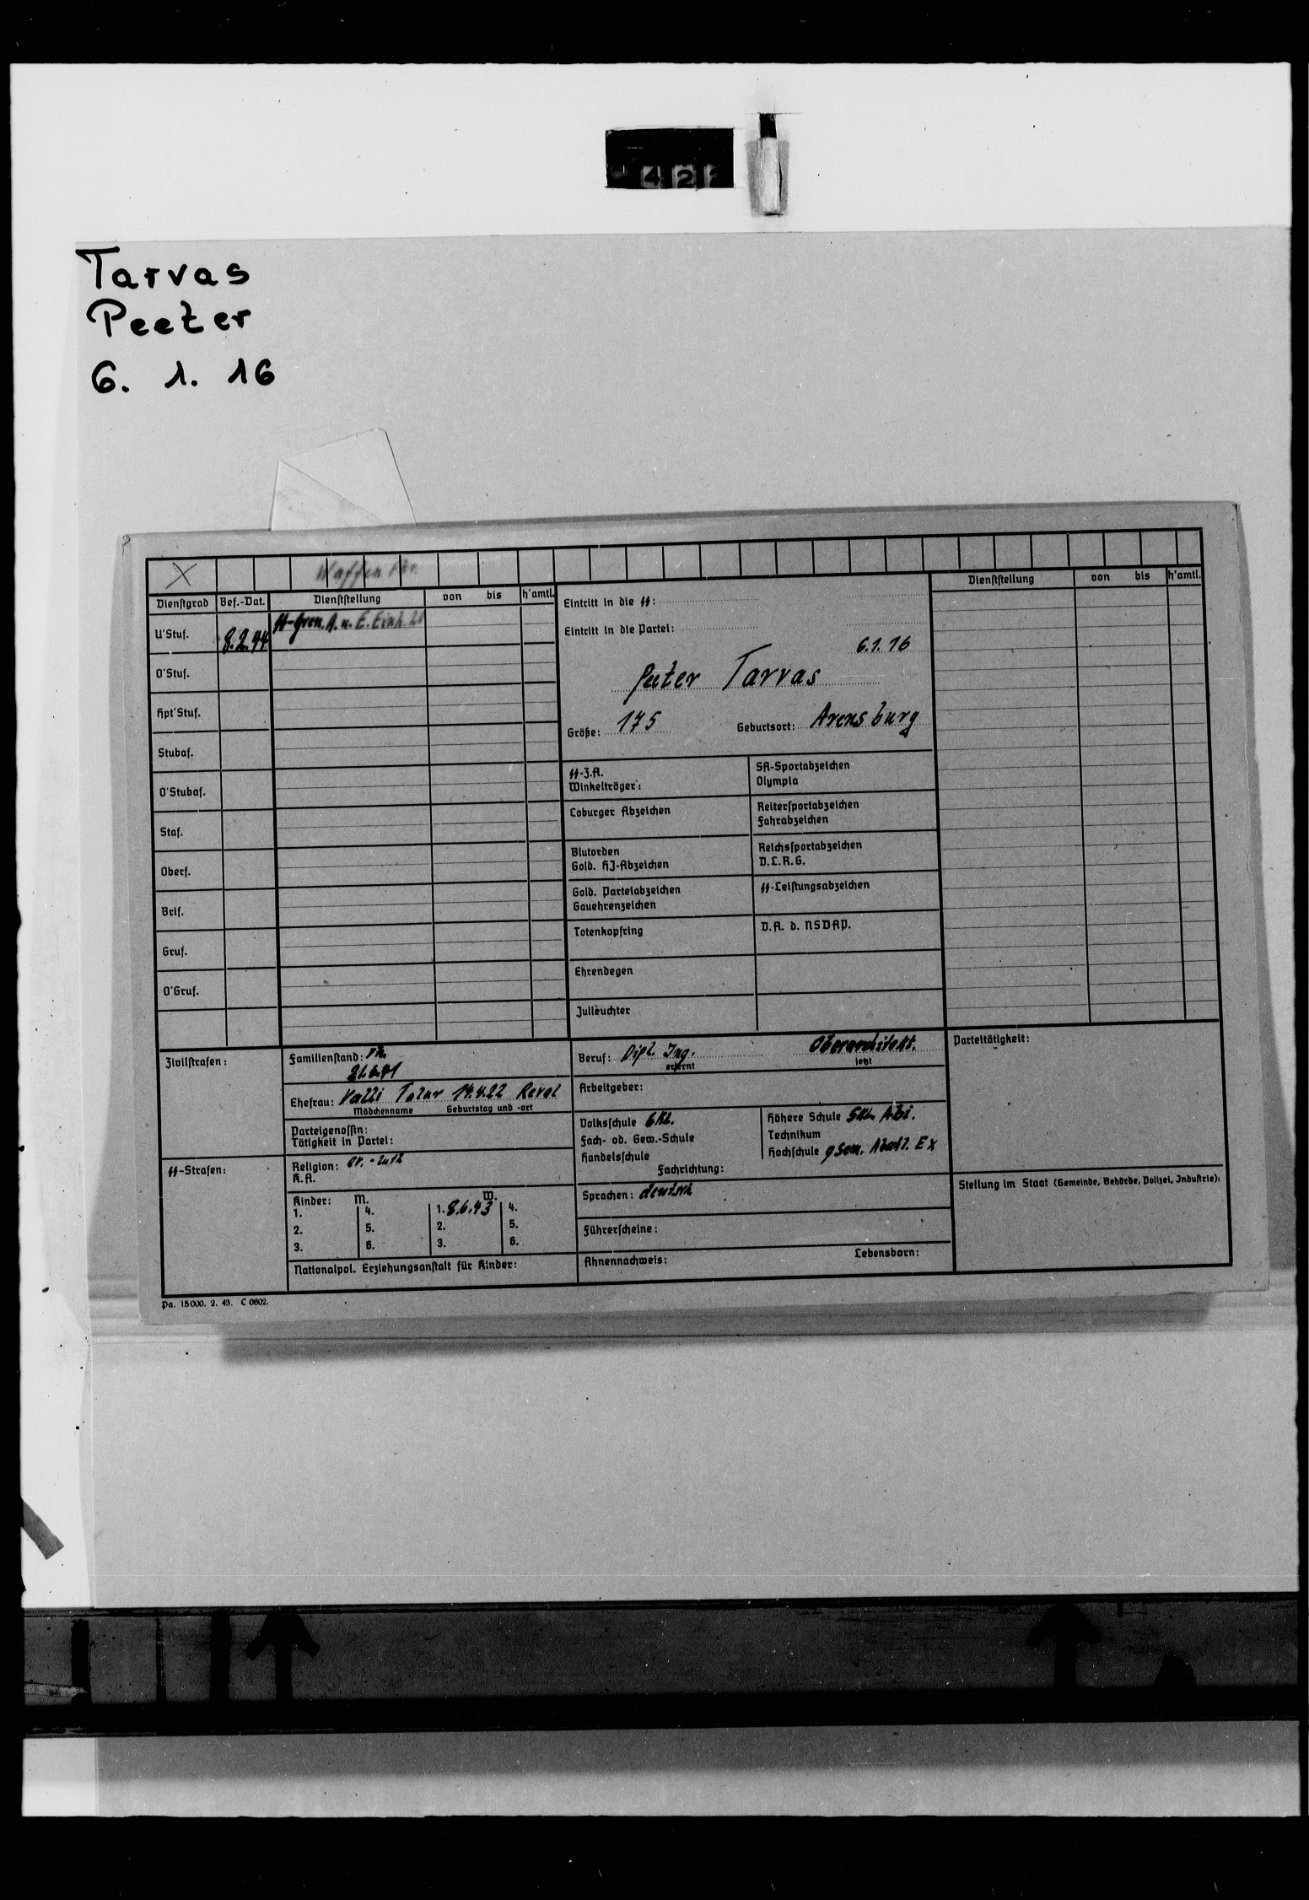 42
Tarvas
Peeter
6. 1. 16
Waffen
Dienstgrad Bef.-Dat. Dienststellung von bis h'amtl.
U'Stuf. 8.2.44 SS-Gren. A. u. E. Einh. 20
O'Stuf.
Hpt'Stuf.
Stubaf.
O'Stubaf.
Staf.
Oberf.
Brif.
Gruf.
O'Gruf.
Eintritt in die SS:
Eintritt in die Partei:
6.1.16
Peeter Tarvas
Größe: 175 Geburtsort: Arensburg
SS-Z.A.
Winkelträger:
SA-Sportabzeichen
Olympia
Coburger Abzeichen
Reitersportabzeichen
Fahrabzeichen
Blutorden
Gold. HJ-Abzeichen
Reichssportabzeichen
D.L.R.G.
Gold. Parteiabzeichen
Gauehrenzeichen
SS-Leistungsabzeichen
Totenkopfring
D.A. d. NSDAP.
Ehrendegen
Julleuchter
Dienststellung von bis h'amtl.
Zivilstrafen:
SS-Strafen:
Familienstand: vh.
Ehefrau: Valli 14.4.22 Reval
Mädchenname Geburtstag und -ort
Parteigenossin:
Tätigkeit in Partei:
Religion: ev.-luth
K.A.
Kinder: m. w.
1. 4. 1. 8.6.43 4.
2. 5. 2. 5.
3. 6. 3. 6.
Nationalpol. Erziehungsanstalt für Kinder:
Beruf: Dipl. Ing. Oberarchitekt.
erlernt jetzt
Arbeitgeber:
Volksschule 6 Kl.
Fach- od. Gew.-Schule
Handelsschule
Höhere Schule 5 Kl. Abi.
Technikum
Hochschule 9 Sem. Ex
Fachrichtung:
Sprachen: deutsch
Führerscheine:
Ahnennachweis: Lebensborn:
Parteitätigkeit:
Stellung im Staat (Gemeinde, Behörde, Polizei, Industrie):
Pa. 15000. 2. 43. C 0602.